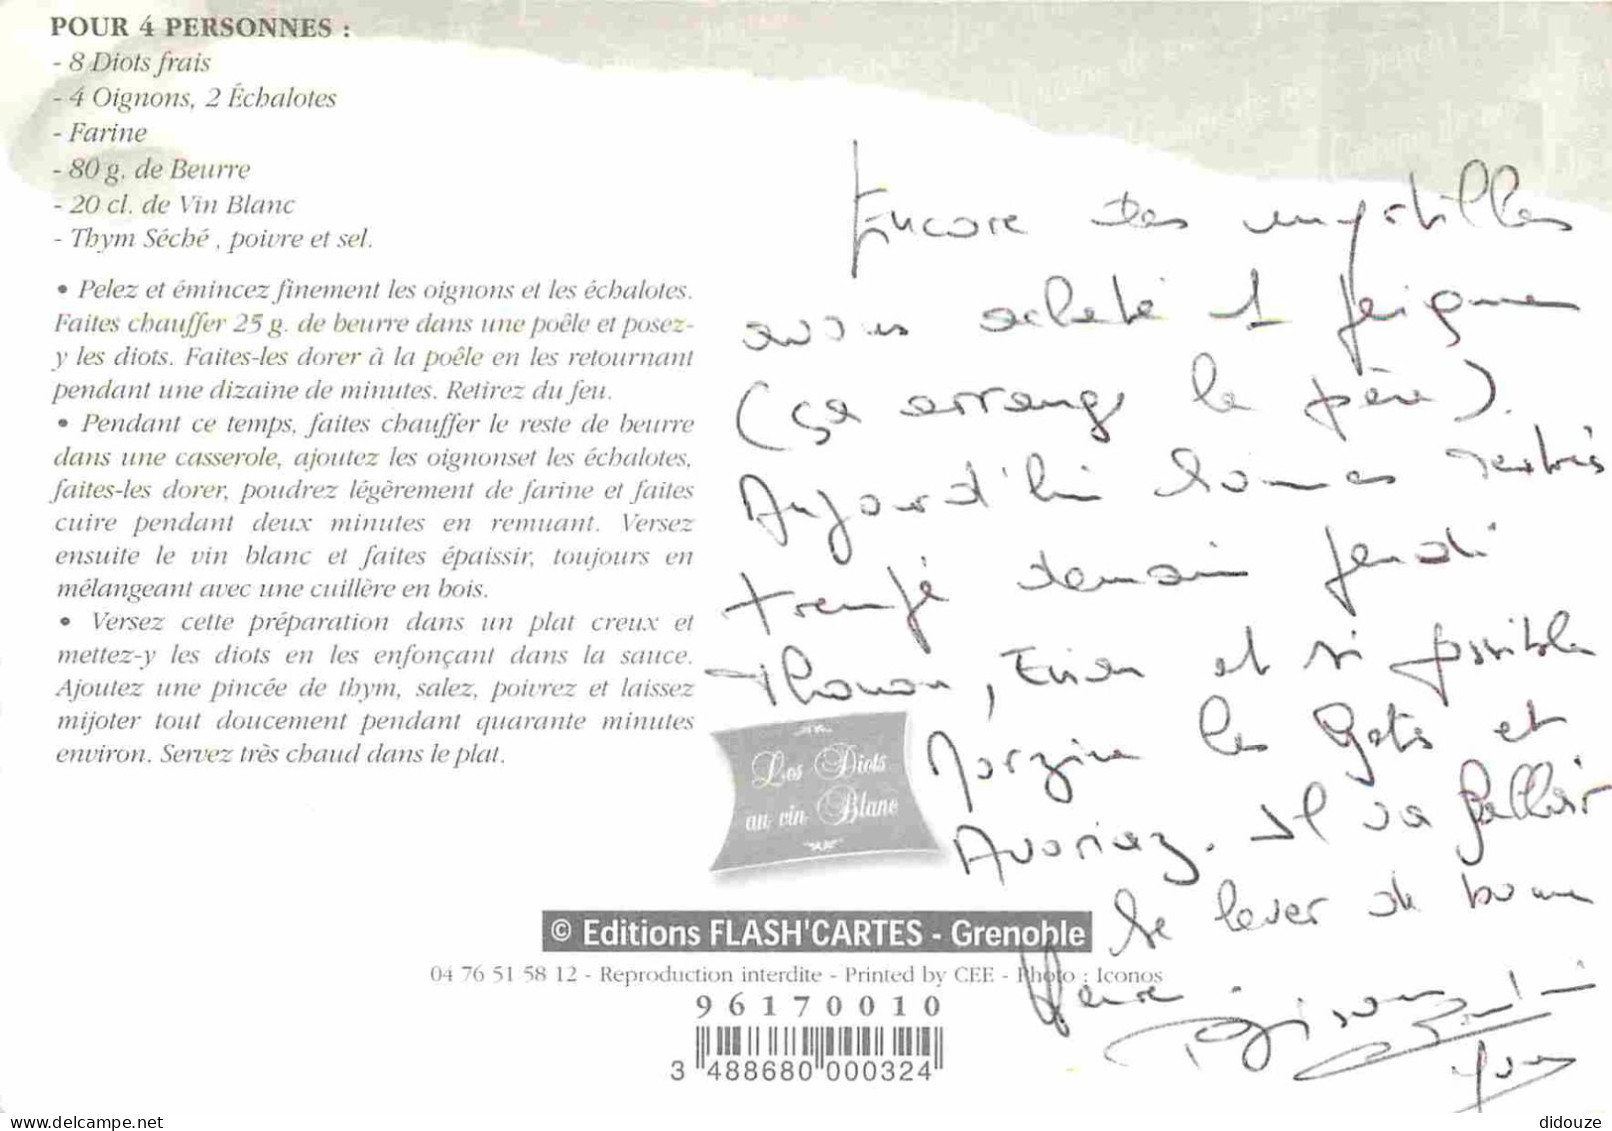 POUR 4 PERSONNES :
- 8 Diots frais
- 4 Oignons, 2 Échalotes
- Farine
- 80 g. de Beurre
- 20 cl. de Vin Blanc
- Thym Séché , poivre et sel.
• Pelez et émincez finement les oignons et les échalotes.
Faites chauffer 25 g. de beurre dans une poêle et posez-
y les diots. Faites-les dorer à la poêle en les retournant
pendant une dizaine de minutes. Retirez du feu.
• Pendant ce temps, faites chauffer le reste de beurre
dans une casserole, ajoutez les oignonset les échalotes,
faites-les dorer, poudrez légèrement de farine et faites
cuire pendant deux minutes en remuant. Versez
ensuite le vin blanc et faites épaissir, toujours en
mélangeant avec une cuillère en bois.
• Versez cette préparation dans un plat creux et
mettez-y les diots en les enfonçant dans la sauce.
Ajoutez une pincée de thym, salez, poivrez et laissez
mijoter tout doucement pendant quarante minutes
environ. Servez très chaud dans le plat.
Les Diots
au vin Blanc
© Editions FLASH'CARTES - Grenoble
04 76 51 58 12 - Reproduction interdite - Printed by CEE - Photo : Iconos
96170010
3 488680 000324
Encore des myrtilles
avons acheté 1 peigne
(ça arrange le père).
Aujourd'hui sommes restés
demain jeudi
Thonon, Evian et si possible
Morzine les Gets et
Avoriaz. Il va falloir
se lever de bonne
heure.
Yves
didouze